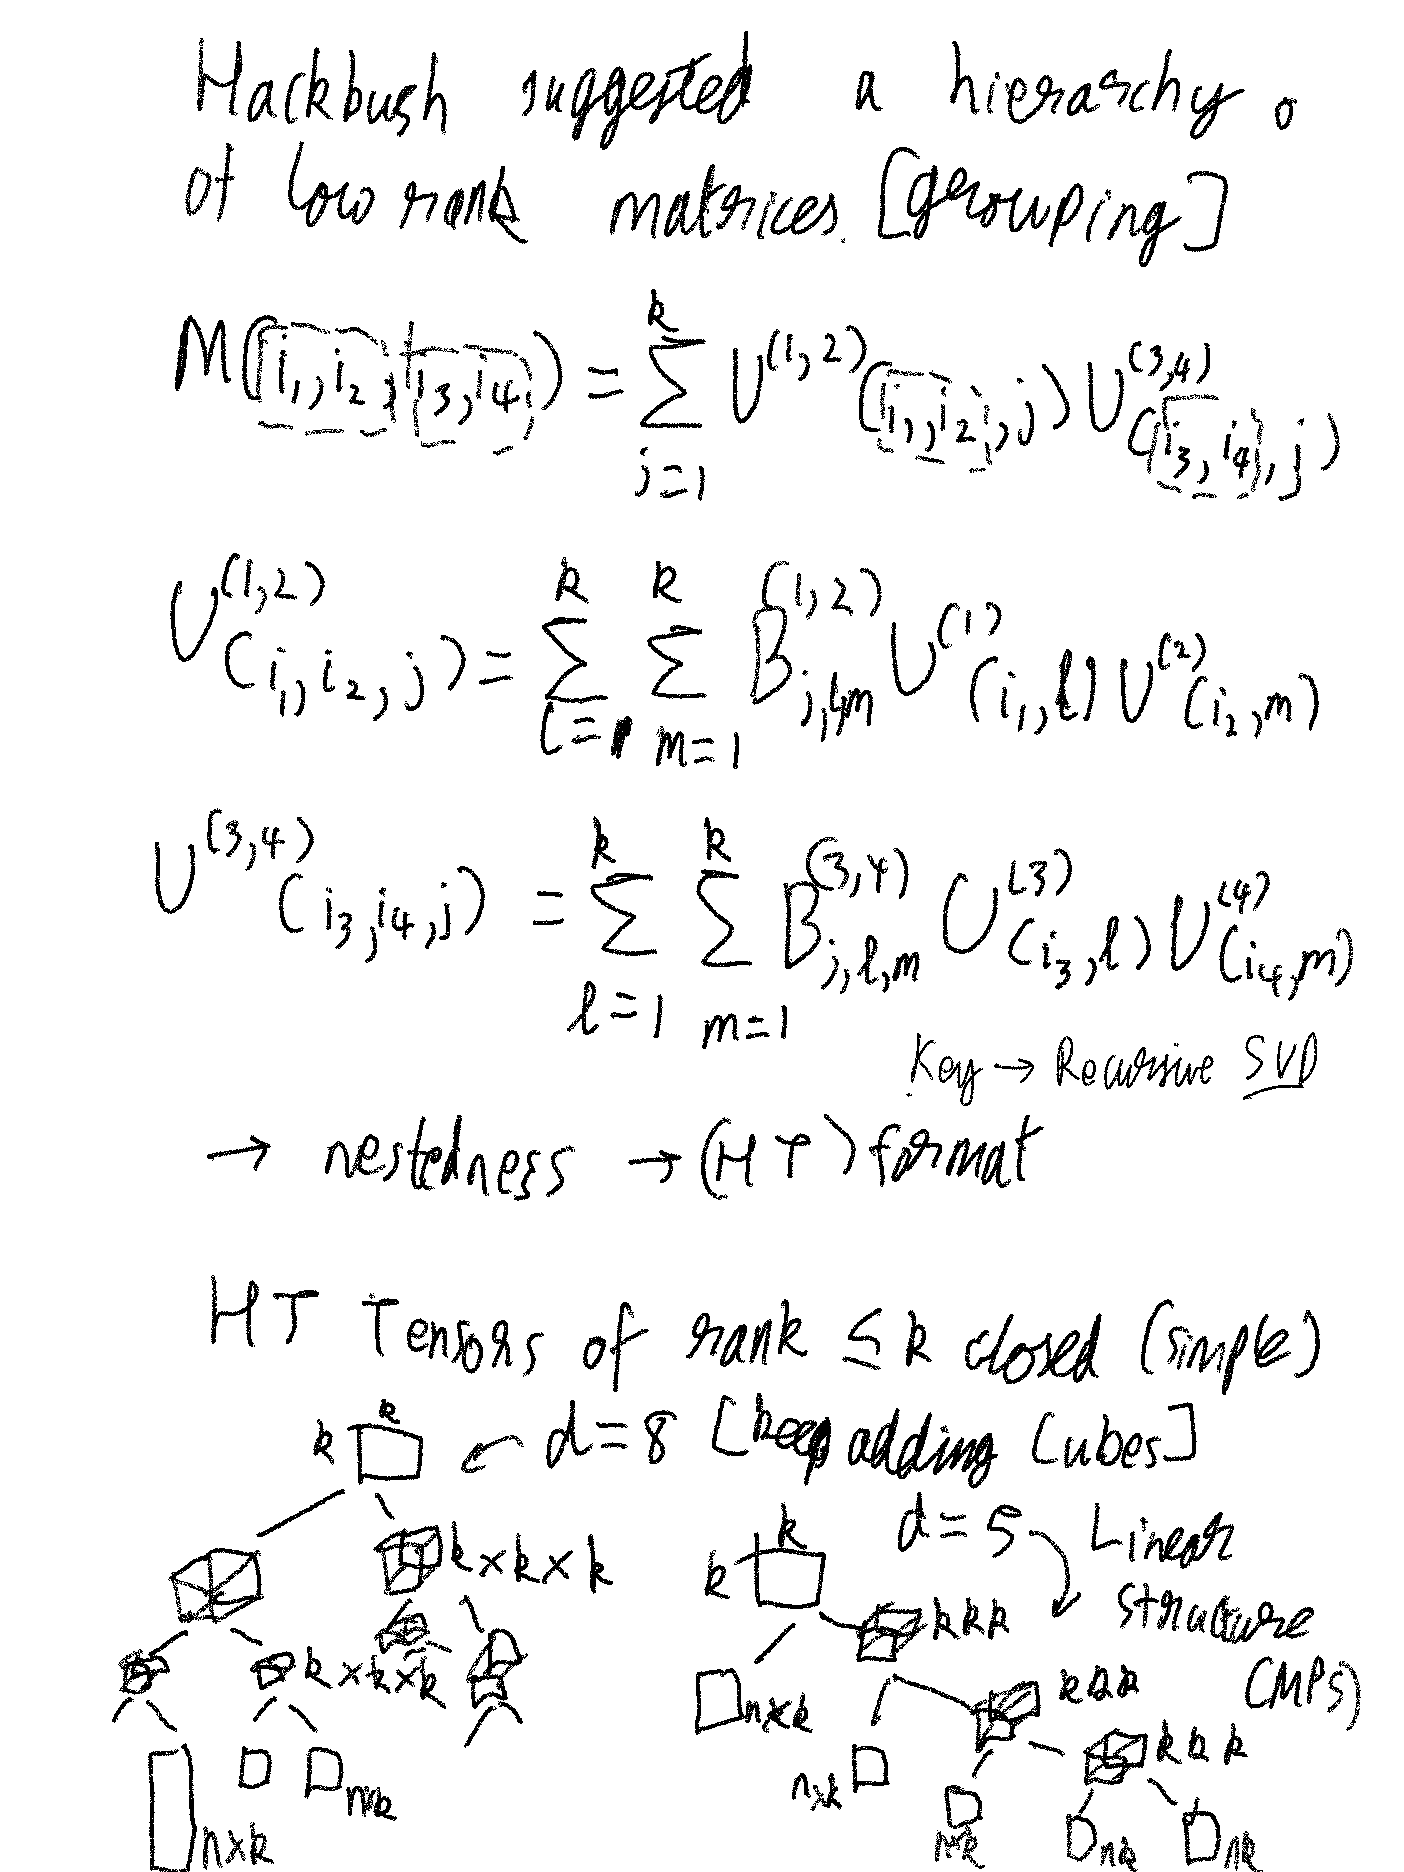 Hackbush suggested a hierarchy.
of low rank matrices. [grouping]
M(i₁, i₂, i₃, i₄) = ∑_{j=1}^{k} U^{(1,2)}(i₁, i₂, j) U^{(3,4)}(i₃, i₄, j)
U^{(1,2)}(i₁, i₂, j) = ∑_{l=1}^{k} ∑_{m=1}^{k} B^{(1,2)}_{j,l,m} U^{(1)}(i₁, l) U^{(2)}(i₂, m)
U^{(3,4)}(i₃, i₄, j) = ∑_{l=1}^{k} ∑_{m=1}^{k} B^{(3,4)}_{j,l,m} U^{(3)}(i₃, l) U^{(4)}(i₄, m)
Key → Recursive SVD
→ nestedness → (HT) format
HT Tensors of rank ≤ k closed (simple)
k
k d = 8 [keep adding Cubes]
k d = 5 Linear
k × k × k k structure
k k k
k × k × k (MPS)
n×k k k k
n×k k k k
nk
n×k nk nk nk